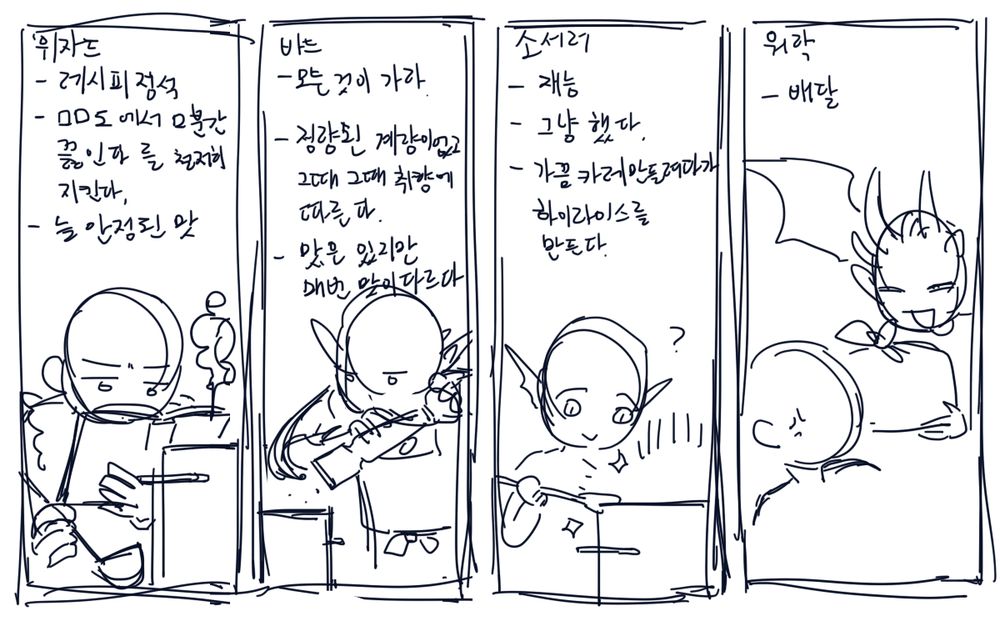 위자드
- 레시피 정석
- ㅁㅁ도 에서 ㅁ분간
끓인다 를 철저히
지킨다,
- 늘 안정된 맛
바드
- 모든 것이 가라.
- 정량된 계량이없고
그때 그때 취향에
따른다.
- 맛은 있지만
매번 맛이다르다
소세러
- 재능
- 그냥 했다.
- 가끔 카레만들려다가
하이라이스를
만든다.
?
워락
- 배달